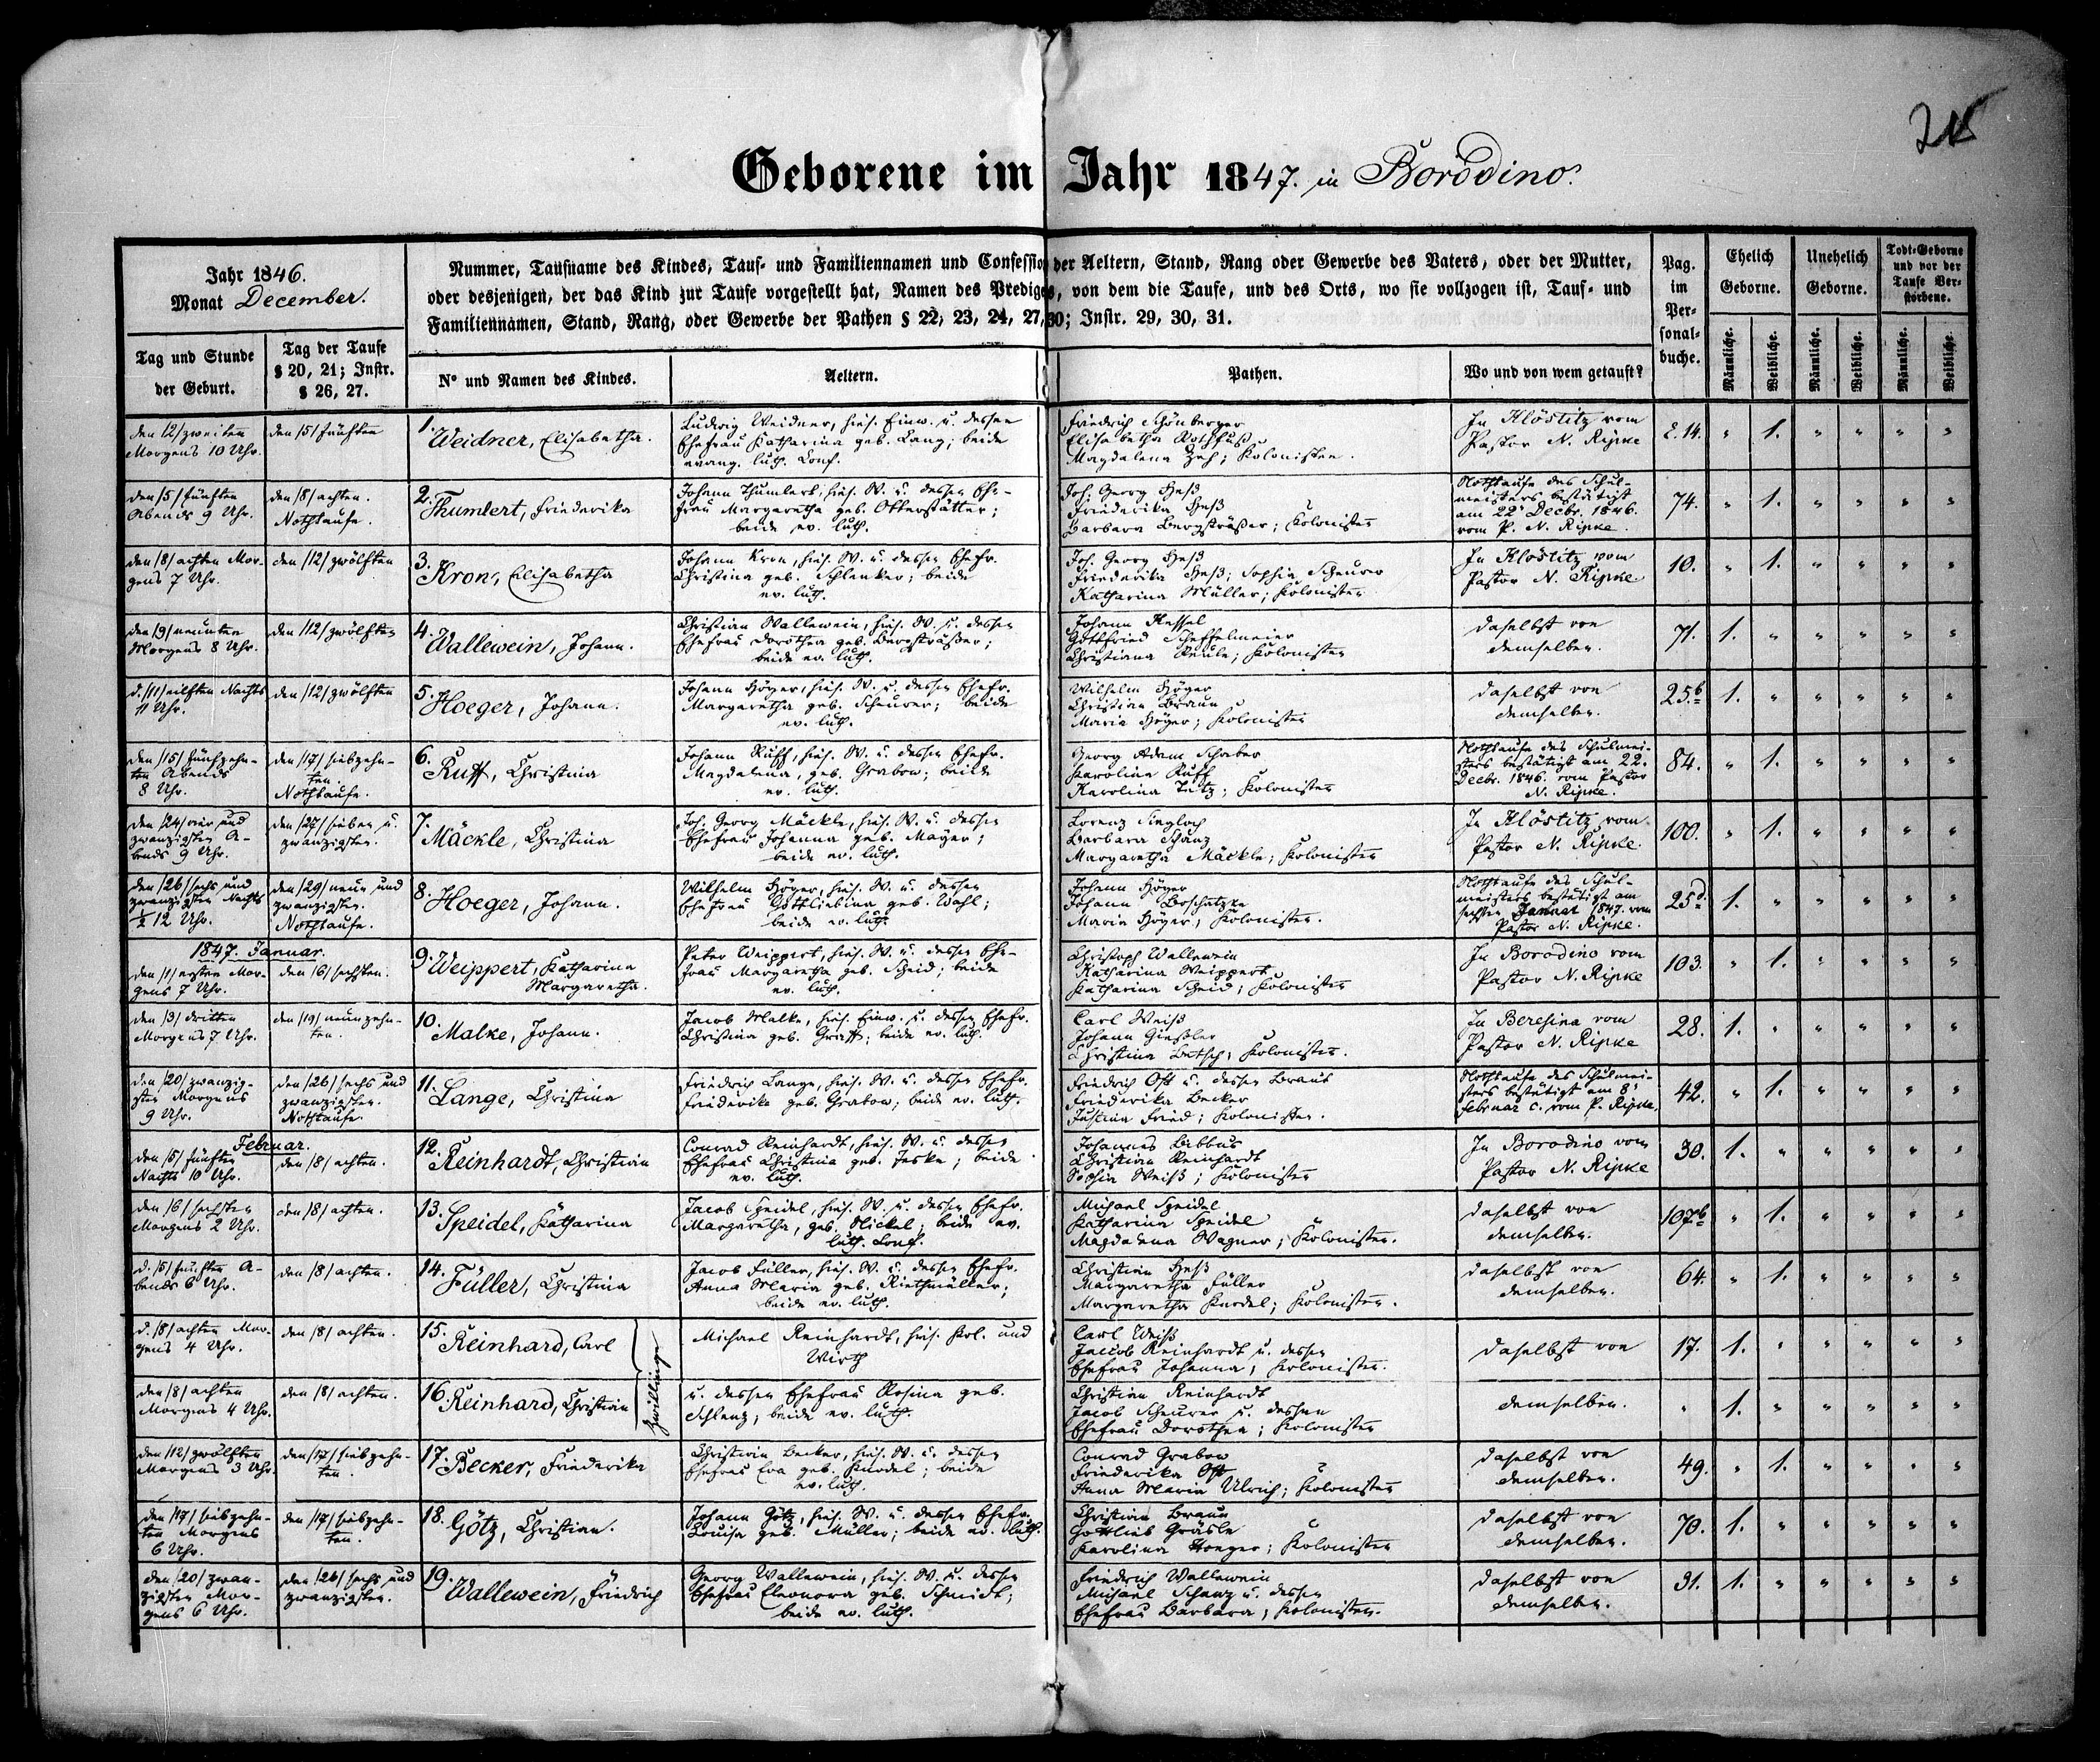 215
Geborene im Jahr 1847. in Borodino.
Jahr 1846.
Monat December.
Nummer, Taufname des Kindes, Tauf- und Familiennamen und Confession der Aeltern, Stand, Rang oder Gewerbe des Vaters, oder der Mutter,
oder desjenigen, der das Kind zur Taufe vorgestellt hat, Namen des Predigers, von dem die Taufe, und des Orts, wo sie vollzogen ist, Tauf- und
Familiennamen, Stand, Rang, oder Gewerbe der Pathen § 22, 23, 24, 27, 30; Instr. 29, 30, 31.
Pag.
im
Per-
sonal-
buche.
Ehelich
Geborne.
Unehelich
Geborne.
Todt-Geborne
und vor der
Taufe Ver-
storbene.
Tag und Stunde
der Geburt.
Tag der Taufe
§ 20, 21; Instr.
§ 26, 27.
N° und Namen des Kindes.
Aeltern.
Pathen.
Wo und von wem getauft?
Männliche.
Weibliche.
Männliche.
Weibliche.
Männliche.
Weibliche.
den /2/ zweiten
Morgens 10 Uhr.
den /5/ fünften
1. Weidner, Elisabetha.
Ludwig Weidner, hies. Einw. u. dessen
Ehefrau Katharina geb. Lang; beide
evang. luth. Conf.
Friedrich Schönberger
Elisabetha Rothfuß
Magdalena Zeh; Kolonisten.
In Klöstitz vom
Pastor N. Ripke
E. 14. " 1. " " " "
den /5/ fünften
Abends 9 Uhr.
den /8/ achten.
Nothtaufe.
2. Thumlert, Friederika
Johann Thumlert, hies. W. u. dessen Ehe-
frau Margaretha geb. Otterstätter;
beide ev. luth.
Joh. Georg Heß
Friederika Heß
Barbara Bergsträßer; Kolonisten
Nothtaufe des Schul-
meisters bestätigt
am 22' Decbr. 1846.
vom P. N. Ripke.
74. " 1. " " " "
den /8/ achten Mor-
gens 7 Uhr.
den /12/ zwölften
3. Kron, Elisabetha
Johann Kron, hies. W. u. dessen Ehefr.
Christina geb. Schlenker; beide
ev. luth.
Joh. Georg Heß
Friederika Heß; Sophia Scheurer
Katharina Müller; Kolonisten
In Klöstitz vom
Pastor N. Ripke
10. " 1. " " " "
den /9/ neunten
Morgens 8 Uhr.
den /12/ zwölften
4. Wallewein, Johann.
Christian Wallewein, hies. W. u. dessen
Ehefrau Dorothea geb. Bergsträßer;
beide ev. luth.
Johann Kessel
Gottfried Scheffelmeier
Christiana Keule; Kolonisten
daselbst von
demselben.
71. 1. " " " " "
d. /11/ eilften Nachts
11 Uhr.
den /12/ zwölften
5. Hoeger, Johann.
Johann Höger, hies. W. u. dessen Ehefr.
Margaretha geb. Scheurer; beide
ev. luth.
Wilhelm Höger
Christian Braun
Maria Höger; Kolonisten
daselbst von
demselben.
25.b 1. " " " " "
den /15/ fünfzehn-
ten Abends
8 Uhr.
den /17/ siebzehn-
ten.
Nothtaufe.
6. Ruff, Christina
Johann Ruff, hies. W. u. dessen Ehefr.
Magdalena, geb. Grabow; beide
ev. luth.
Georg Adam Schaber
Karolina Ruff
Karolina Tutz; Kolonisten
Nothtaufe des Schulmei-
sters bestätigt am 22.
Decbr. 1846. vom Pastor
N. Ripke.
84. " 1. " " " "
den /24/ vier und
zwanzigsten A-
bends 9 Uhr.
den /27/ sieben u.
zwanzigsten.
7. Mäckle, Christina
Joh. Georg Mäckle, hies. W. u. dessen
Ehefrau Johanna geb. Mayer;
beide ev. luth.
Lorenz Siegloch
Barbara Schanz
Margaretha Mäckle; Kolonisten
In Klöstitz vom
Pastor N. Ripke.
100. " 1. " " " "
den /26/ sechs und
zwanzigsten Nachts
½ 12 Uhr.
den /29/ neun und
zwanzigsten.
Nothtaufe.
8. Hoeger, Johann.
Wilhelm Höger, hies. W. u. dessen
Ehefrau Gottliebina geb. Wahl;
beide ev. luth.
Johann Höger
Johann Boschatzke
Maria Höger; Kolonisten.
Nothtaufe des Schul-
meisters bestätigt am
sechsten Januar 1847. vom
Pastor N. Ripke.
25d. 1. " " " " "
1847. Januar.
den /1/ ersten Mor-
gens 7 Uhr.
den /6/ sechsten.
9. Weippert, Katharina
Margaretha.
Peter Weippert, hies. W. u. dessen Ehe-
frau Margaretha geb. Scheid; beide
ev. luth.
Christoph Wallewein
Katharina Weippert
Katharina Scheid; Kolonisten
In Borodino vom
Pastor N. Ripke
103. " 1. " " " "
den /3/ dritten
Morgens 7 Uhr.
den /19/ neunzehn-
ten.
10. Malke, Johann.
Jacob Malke, hies. Einw. u. dessen Ehefr.
Christina geb. Graff; beide ev. luth.
Carl Weiß
Johann Gießler
Christina Betsch; Kolonisten.
In Beresina vom
Pastor N. Ripke
28. 1. " " " " "
den /20/ zwanzig-
sten Morgens
9 Uhr.
den /26/ sechs und
zwanzigsten.
Nothtaufe.
11. Lange, Christina
Friedrich Lange, hies. W. u. dessen Ehefr.
Friederike geb. Grabow; beide ev. luth.
Friedrich Ost u. dessen Braut
Friederika Becker
Justina Fried; Kolonisten.
Nothtaufe des Schulmei-
sters bestätigt am 8'
Februar c. vom P. Ripke.
42. " 1. " " " "
Februar.
den /5/ fünften
Nachts 10 Uhr.
den /8/ achten.
12. Reinhardt, Christian
Conrad Reinhardt, hies. W. u. dessen
Ehefrau Christina geb. Jeske; beide
ev. luth.
Johannes Bibbus
Christian Reinhardt
Sophia Weiß; Kolonisten
In Borodino vom
Pastor N. Ripke
30. 1. " " " " "
den /6/ sechsten
Morgens 2 Uhr.
den /8/ achten.
13. Speidel, Katharina
Jacob Speidel, hies. W. u. dessen Ehefr.
Margaretha, geb. Nickel; beide ev.
luth. Conf.
Michael Speidel
Katharina Speidel
Magdalena Wagner; Kolonisten.
daselbst von
demselben.
107b " 1. " " " "
d. /5/ fünften A-
bends 6 Uhr.
den /8/ achten.
14. Füller, Christina
Jacob Füller, hies. W. u. dessen Ehefr.
Anna Maria geb. Riethmüller;
beide ev. luth.
Christian Heß
Margaretha Füller
Margaretha Knodel; Kolonisten.
daselbst von
demselben.
64. " 1. " " " "
d. /8/ achten Mor-
gens 4 Uhr.
den /8/ achten.
15. Reinhard, Carl
Zwillinge
Michael Reinhardt, hies. Kol. und
Wirth
Carl Weiß
Jacob Reinhardt u. dessen
Ehefrau Johanna; Kolonisten.
daselbst von
17. 1. " " " " "
den /8/ achten
Morgens 4 Uhr.
den /8/ achten.
16. Reinhard, Christian
u. dessen Ehefrau Rosina geb.
Schlenz; beide ev. luth.
Christian Reinhardt
Jacob Scheurer u. dessen
Ehefrau Dorothea; Kolonisten
demselben.
" 1. " " " " "
den /12/ zwölften
Morgens 3 Uhr.
den /17/ siebzehn-
ten.
17. Becker, Friederika
Christian Becker, hies. W. u. dessen
Ehefrau Eva geb. Knodel; beide
ev. luth.
Conrad Grabow
Friederika Ost
Anna Maria Ulrich; Kolonisten
daselbst von
demselben.
49. " 1. " " " "
den /17/ siebzehn-
ten Morgens
6 Uhr.
den /17/ siebzehn-
ten.
18. Götz, Christian.
Johann Götz, hies. W. u. dessen Ehefr.
Louise geb. Müller; beide ev. luth.
Christian Braun
Gottlieb Gräsle
Karolina Hoeger; Kolonisten
daselbst von
demselben.
70. 1. " " " " "
den /20/ zwan-
zigsten Mor-
gens 6 Uhr.
den /26/ sechs und
zwanzigsten.
19. Wallewein, Friedrich
Georg Wallewein, hies. W. u. dessen
Ehefrau Eleonora geb. Schmidt;
beide ev. luth.
Friedrich Wallewein
Michael Schanz u. dessen
Ehefrau Barbara; Kolonisten.
daselbst von
demselben.
31. 1. " " " " "